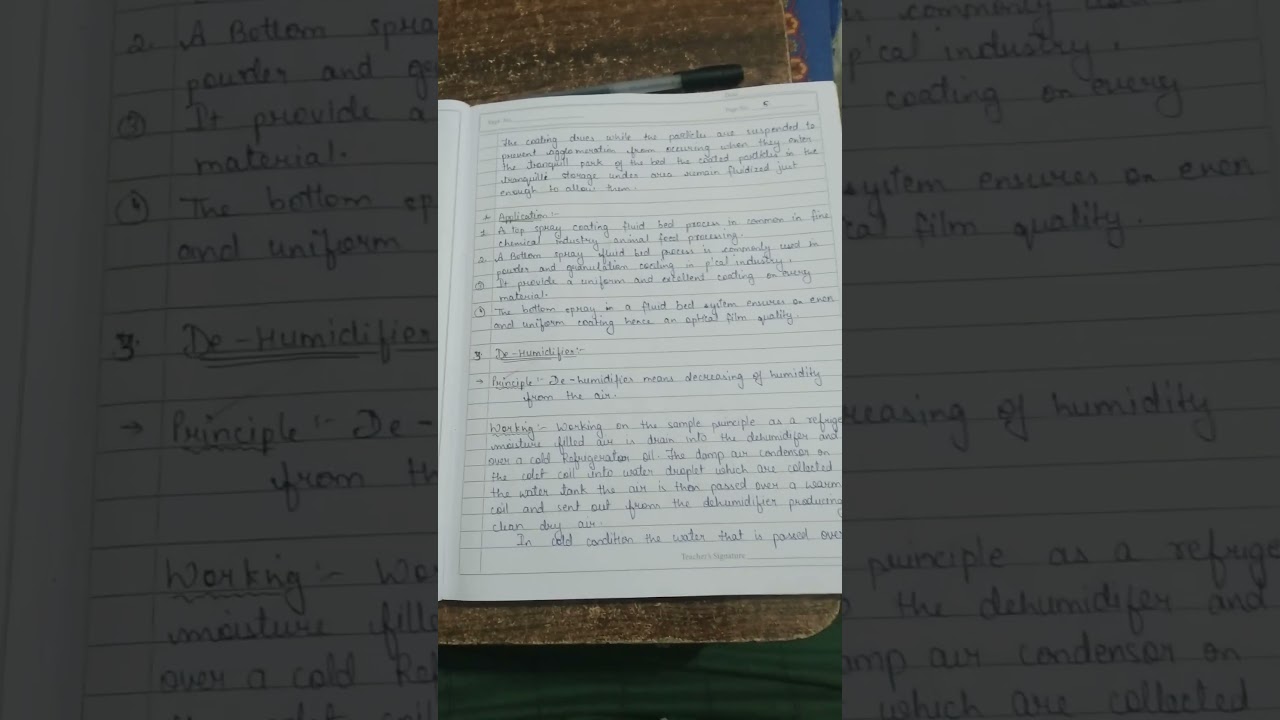 Page No. 5
The coating dries while the particles are suspended to
prevent agglomeration from occuring when they enter
the tranquill park of the bed the coated particles in the
tranquille storage under area remain fluidized just
enough to allow them.
* Application:-
1. A top spray coating fluid bed process in common in fine
chemical industry animal feed processing.
2. A Bottom spray fluid bed process is commonly used in
powder and granulation coating in p'cal industry.
③ It provide a uniform and excellent coating on every
material.
④ The bottom spray in a fluid bed system ensures on even
and uniform coating hence an optical film quality.
3. De-Humidifier:-
→ Principle:- De-humidifier means decreasing of humidity
from the air.
Workng:- Working on the sample principle as a refrige
moisture filled air is drain into the dehumidifer and
over a cold Refrigerator oil. The damp air condensor on
the colet coil into water droplet which are collected
the water tank the air is then passed over a warm
coil and sent out from the dehumidifier producing
clean dry air.
In cold condition the water that is passed over
Teacher's Signature